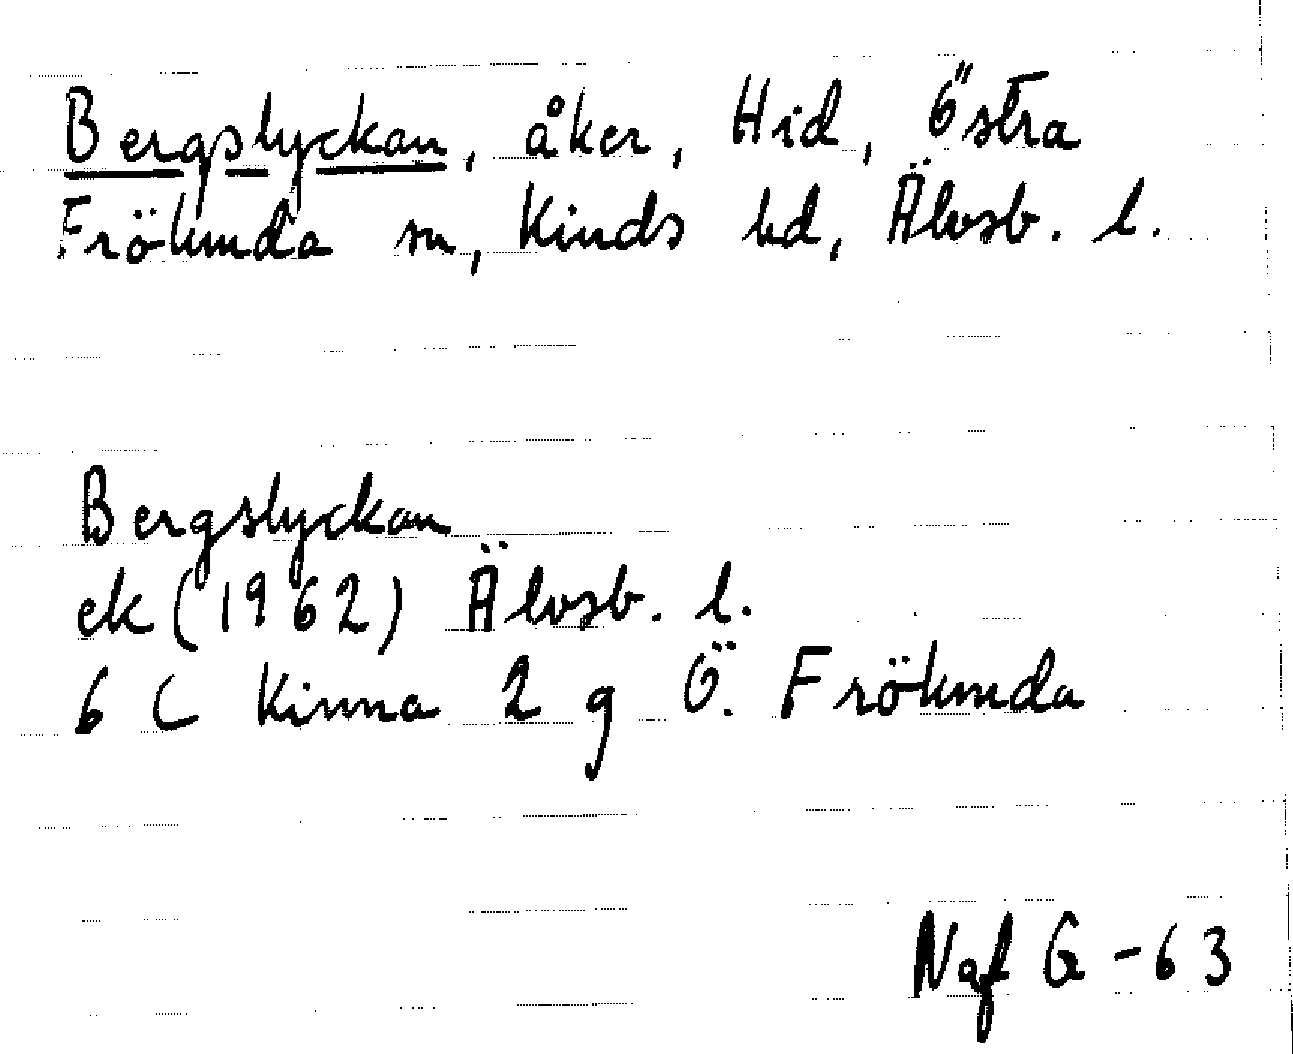 Bergslyckan, åker, Hid, Östra
Frökunda sn, Kinds hd, Älvsb. l.
Bergslyckan
ek (1962) Älvsb. l.
6 C Kinna 2 g Ö. Frökunda
NgfG-63